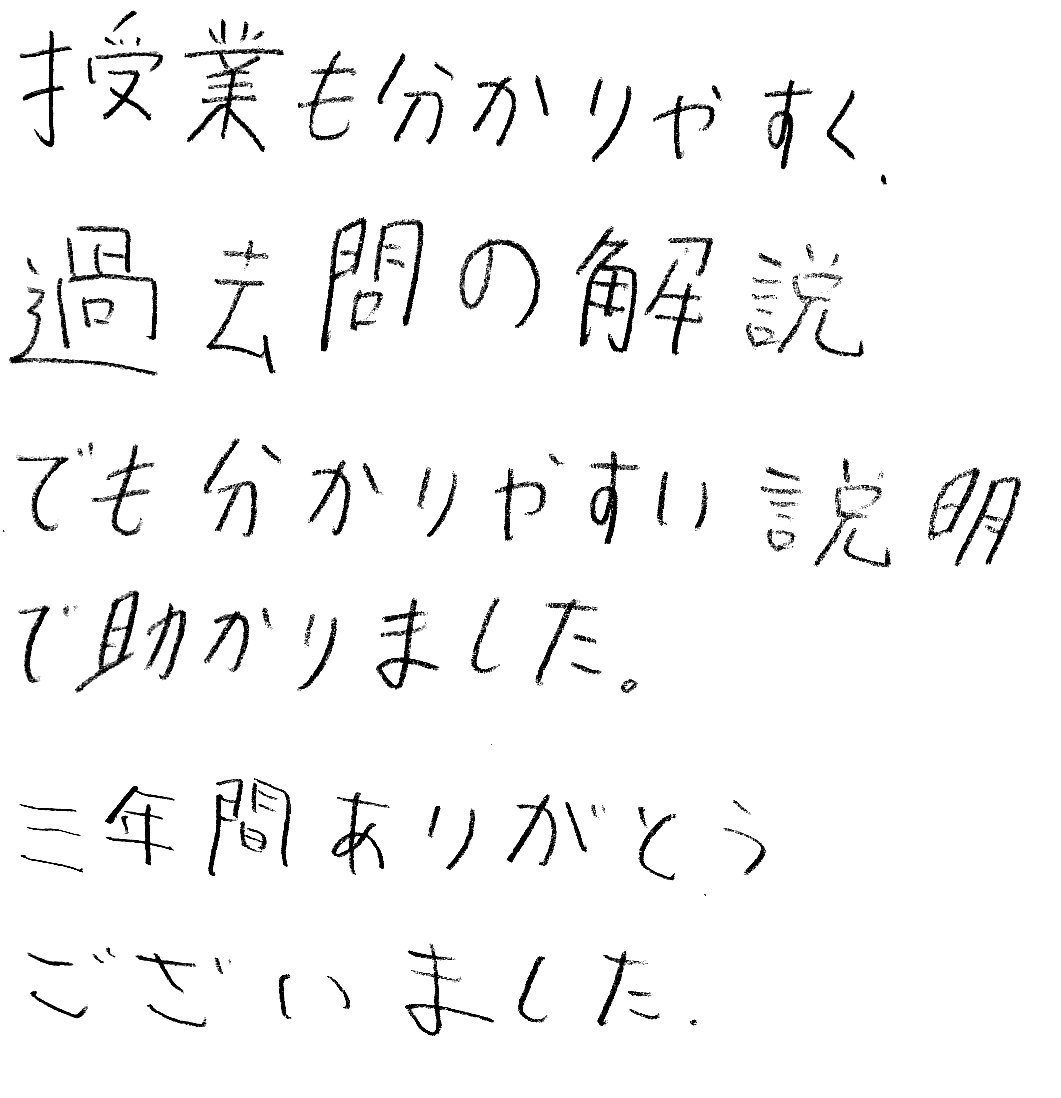 授業も分かりやすく、
過去問の解説
でも分かりやすい説明
で助かりました。
三年間ありがとう
ございました.